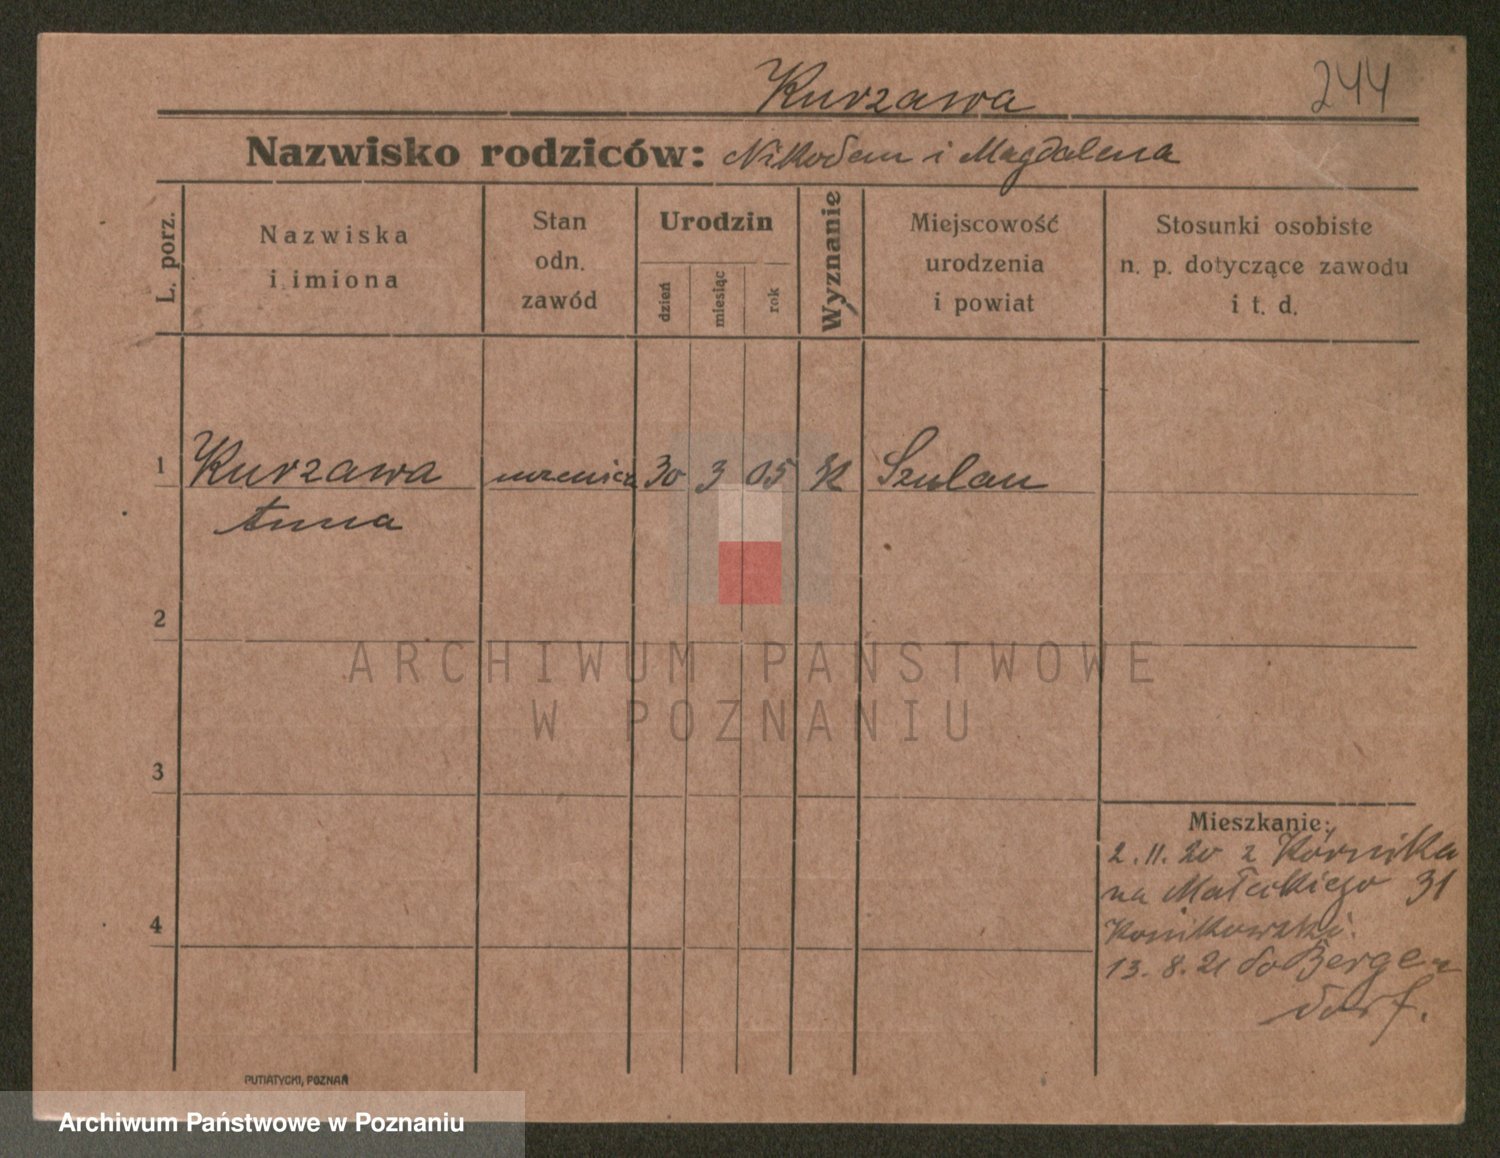 Kurzawa 244
Nazwisko rodziców: Nikodem i Magdalena
L. porz.
Nazwiska
i imiona
Stan
odn.
zawód
Urodzin
dzień
miesiąc
rok
Wyznanie
Miejscowość
urodzenia
i powiat
Stosunki osobiste
n. p. dotyczące zawodu
i t. d.
1 Kurzawa uczenica 30 3 05 K
Anna
2
ARCHIWUM PAŃSTWOWE
W POZNANIU
3
Mieszkanie:
2. 11. 20 z Kórnika
na Małeckiego 31
Konikowski.
4
13. 8. 21 do Bergen
dorf.
PUTIATYCKI, POZNAŃ
Archiwum Państwowe w Poznaniu